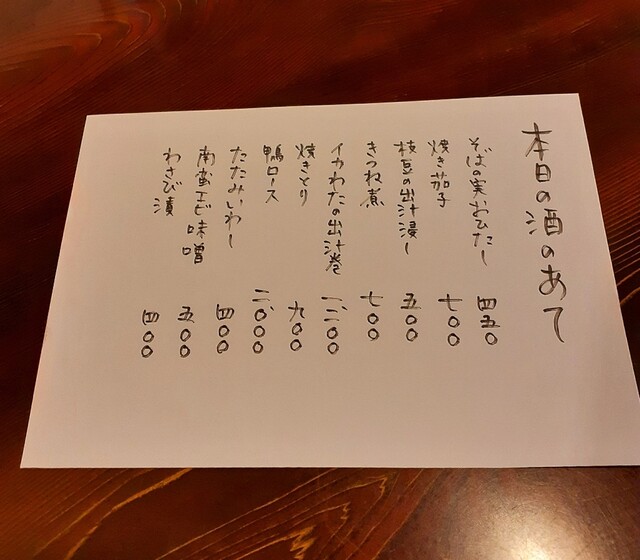 本日の酒のあて
そばの実おひたし 四五〇
焼き茄子 七〇〇
枝豆の出汁浸し 五〇〇
きつね煮 七〇〇
イカわたの出汁巻 一、二〇〇
焼きとり 九〇〇
鴨ロース 二、〇〇〇
たたみいわし 四〇〇
南蛮エビ味噌 五〇〇
わさび漬 四〇〇